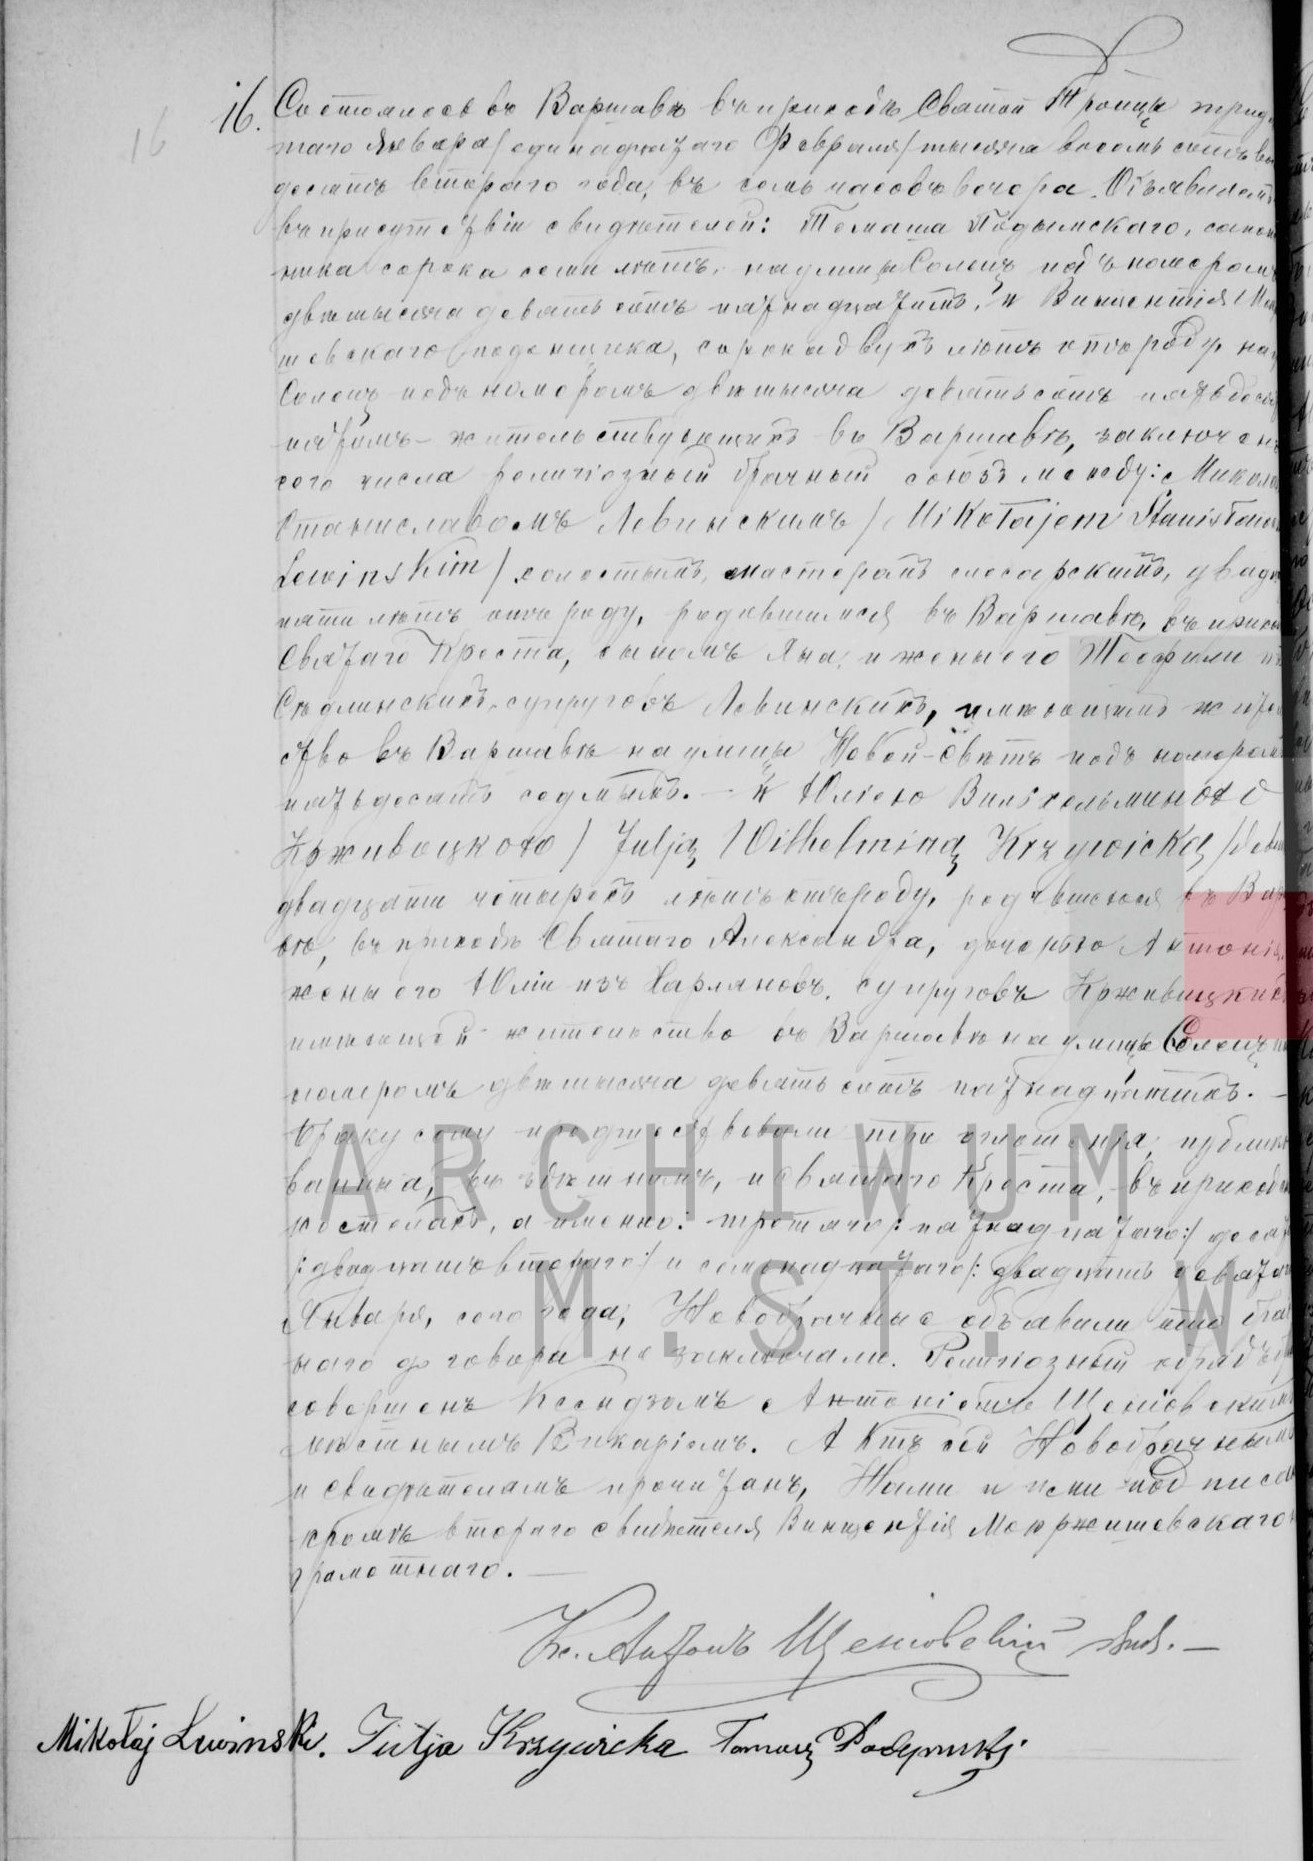 16
16. Состоялось въ Варшавѣ въ приходѣ Святой Троицы трид
таго Января/ одинадцатаго Февраля/ тысяча восемь сотъ во
десятъ втораго года, въ семь часовъ вечера. Объявляемъ
въ присутствіи свидѣтелей: Томаша Подымскаго, сапож
ника сорока семи лѣтъ, на улицы Солецъ подъ номеромъ
двѣ тысяча девять сотъ пятнадцатымъ, и Винцентія
шевскаго поденщика, сорока двухъ лѣтъ отъ роду, на
Солецъ подъ номеромъ двѣ тысяча девять сотъ пятьдеся
пятымъ – жительствующихъ въ Варшавѣ, заключенъ
сего числа религіозный брачный союзъ между: Микола
Станиславомъ Левинскимъ / Mikołajem Stanisław
Lewinskim / холостымъ, мастеромъ слесарскимъ, двадц
пяти лѣтъ отъ роду, родившимся въ Варшавѣ, въ прихо
Святаго Креста, сыномъ Яна и жены его Теофили изъ
супруговъ Левинскихъ, имѣющимъ жител
ство въ Варшавѣ на улицы Новой-Свѣтъ подъ номеромъ
пятьдесятъ седмымъ. – и Юліею Вильхельминою
Крживицкою / Julją Wilhelminą Krzywicką / дѣви
двадцати четырехъ лѣтъ отъ роду, родившеюся въ Варш
вѣ, въ приходѣ Святаго Александра, дочерью Антонія,
жены его Юліи изъ супруговъ Крживицкихъ
имѣющей жительство въ Варшавѣ на улицы Солецъ
номеромъ двѣ тысяча девять сотъ пятнадцатымъ. –
Браку сему предшествовали три оглашенія, публико
ванныя, въ здѣшнемъ, и Святаго Креста, въ приходск
костелахъ, а именно: третяго /: пятнадцатаго :/ десят
/: двадцать втораго :/ и семнадцатаго /: двадцать девятаго
Января, сего года, Новобрачные объявили что брач
наго договора не заключали. Религіозный обрядъ
совершенъ Ксендзомъ Антоніемъ
мѣстнымъ Викаріемъ. Актъ сей Новобрачнымъ
и Свидѣтелямъ прочитанъ, Нами и ими подписан
кромѣ втораго свидѣтеля Винцентія Мокржишевскаго
грамотнаго. –
Кс. Антонъ
Mikołaj Lewinski. Julja Krzywicka Tomasz Podymski
ARCHIWUM
M. ST. W